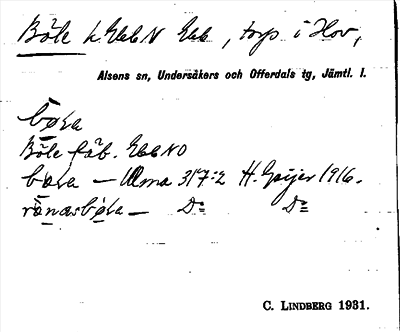 Böle L EkbN Ekb, torp i Hov,
Alsens sn, Undersåkers och Offerdals tg, Jämtl. l.
bøla
Böle fäb. EkbNO
bøla — Ulma 317:2 H. Geijer 1916.
rånasbøla — Dº Dº
C. LINDBERG 1931.